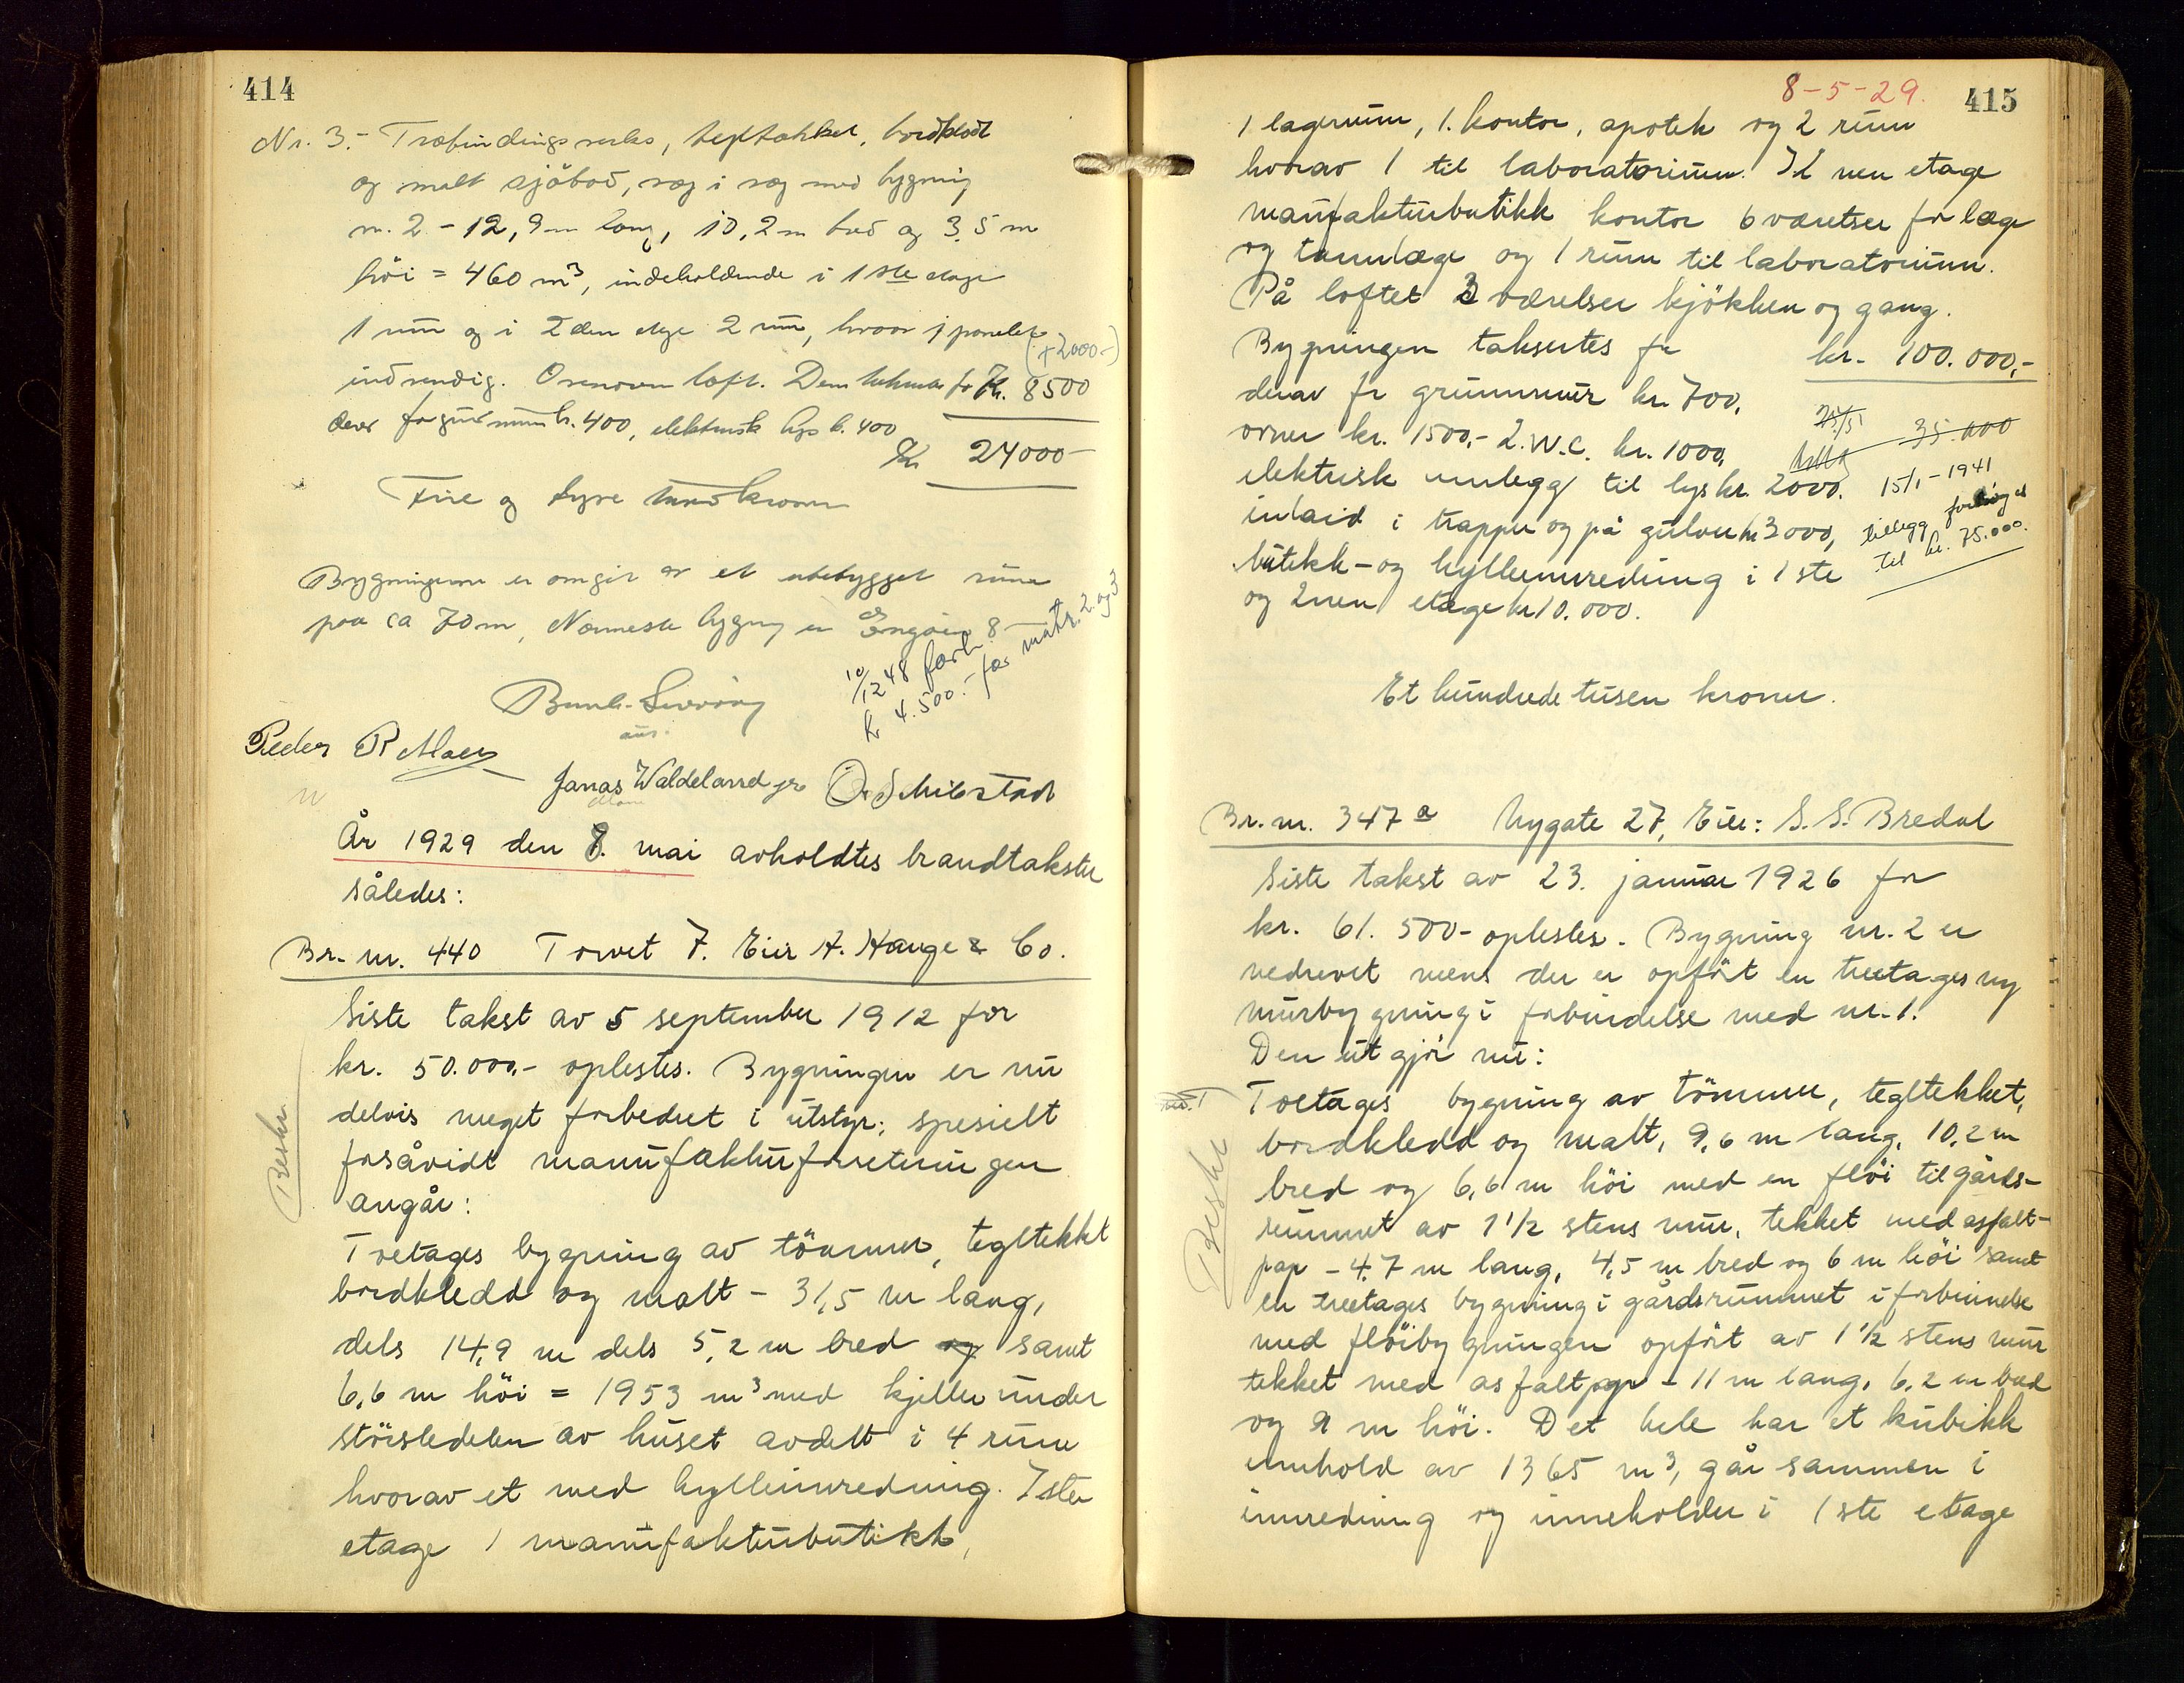 414
Nr. 3.- Træbindingsverks, tegltækket, bordklædt
og malt sjöbod, væg i væg med bygning
nr. 2 - 12,9 m lang, 10,2 m bred og 3,5 m
höi = 460 m³, indeholdende i 1ste etage
1 rum og i 2den etge 2 rum, hvorav 1 panelet
(+2000-)
indvendig. Ovenover loft. Den takseres for Kr. 8500
derav for grundmur kr. 400, elektrisk lys kr. 400
Kr 24000-
Fire og tyve tusind kroner
Bygningerne er omgit av et ubebygget rum
paa ca 70 m, Nærmeste bygning er Engöien 8
10/12 48 forh.
kr 4.500.- for matr. 2 og 3
Peder P. Moen
Jonas Waldeland jr O. Schibstad
År 1929 den 8. mai avholdtes brandtakster
således:
Br. nr. 440 Torvet 7. Eier H. Hauge & Co.
Siste takst av 5 september 1912 for
kr. 50.000,- oplestes. Bygningen er nu
delvis meget forbedret i utstyr; spesielt
forsåvidt manufakturforretningen
angår:
Beskr.
Toetages bygning av tömmer, tegltekket
bordkledd og malt - 31,5 m lang,
dels 14,9 m dels 5,2 m bred og samt
6,6 m höi = 1953 m³ med kjeller under
störstedelen av huset avdelt i 4 rum
hvorav et med hylleinredning. I ste
etage 1 manufakturbutikk,
8-5-29. 415
1 lagerrum, 1. kontor, apotek og 2 rum
hvorav 1 til laboratorium. I 2 nen etage
manufakturbutikk kontor 6 værelser for læge
og tannlæge og 1 rum til laboratorium.
På loftet 3 værelser kjökken og gang.
Bygningen takseres for kr. 100.000,-
derav for grunnmur kr. 700,
ovner kr. 1500,- 2. W.C. kr. 1000,
elektrisk innlegg til lys kr. 2000.
inlaid i trapper og på gulver kr 3000,
butikk- og hylleinnredning i 1ste
og 2nen etage kr 10.000.
35.000
15/1-1941
tillegg forhöyet
til kr. 75.000.
Et hundrede tusen kroner.
Br. nr. 347 a Nygate 27, Eier: S. S. Bredal
Siste takst av 23. januar 1926 for
kr. 61.500- oplestes. Bygning nr. 2 er
nedrevet mens der er opfört en treetages ny
murbygning i forbindelse med nr. 1.
Den utgjör nu:
nr. 1 Toetages bygning av tömmer, tegltekket,
bordkledd og malt, 9,6 m lang, 10,2 m
bred og 6,6 m höi med en flöi til gårds-
Beskr
rummet av 1 1/2 stens mur, tekket med asfalt-
pap - 4,7 m lang, 4,5 m bred og 6 m höi samt
en treetages bygning i gårdsrummet i forbinnelse
med flöibygningen opfört av 1 1/2 stens mur
tekket med asfaltpap - 11 m lang, 6,2 m bred
og 9 m höi. Det hele har et kubikk
innhold av 1365 m³, går sammen i
innredning og inneholder i 1ste etage